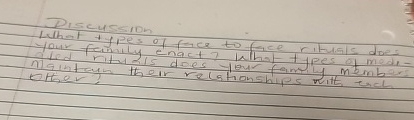 Discussion
What types of face to face rituals does
your family enact? What types of media-
ated rituals does your family members
maintayn their relationships with each
other?